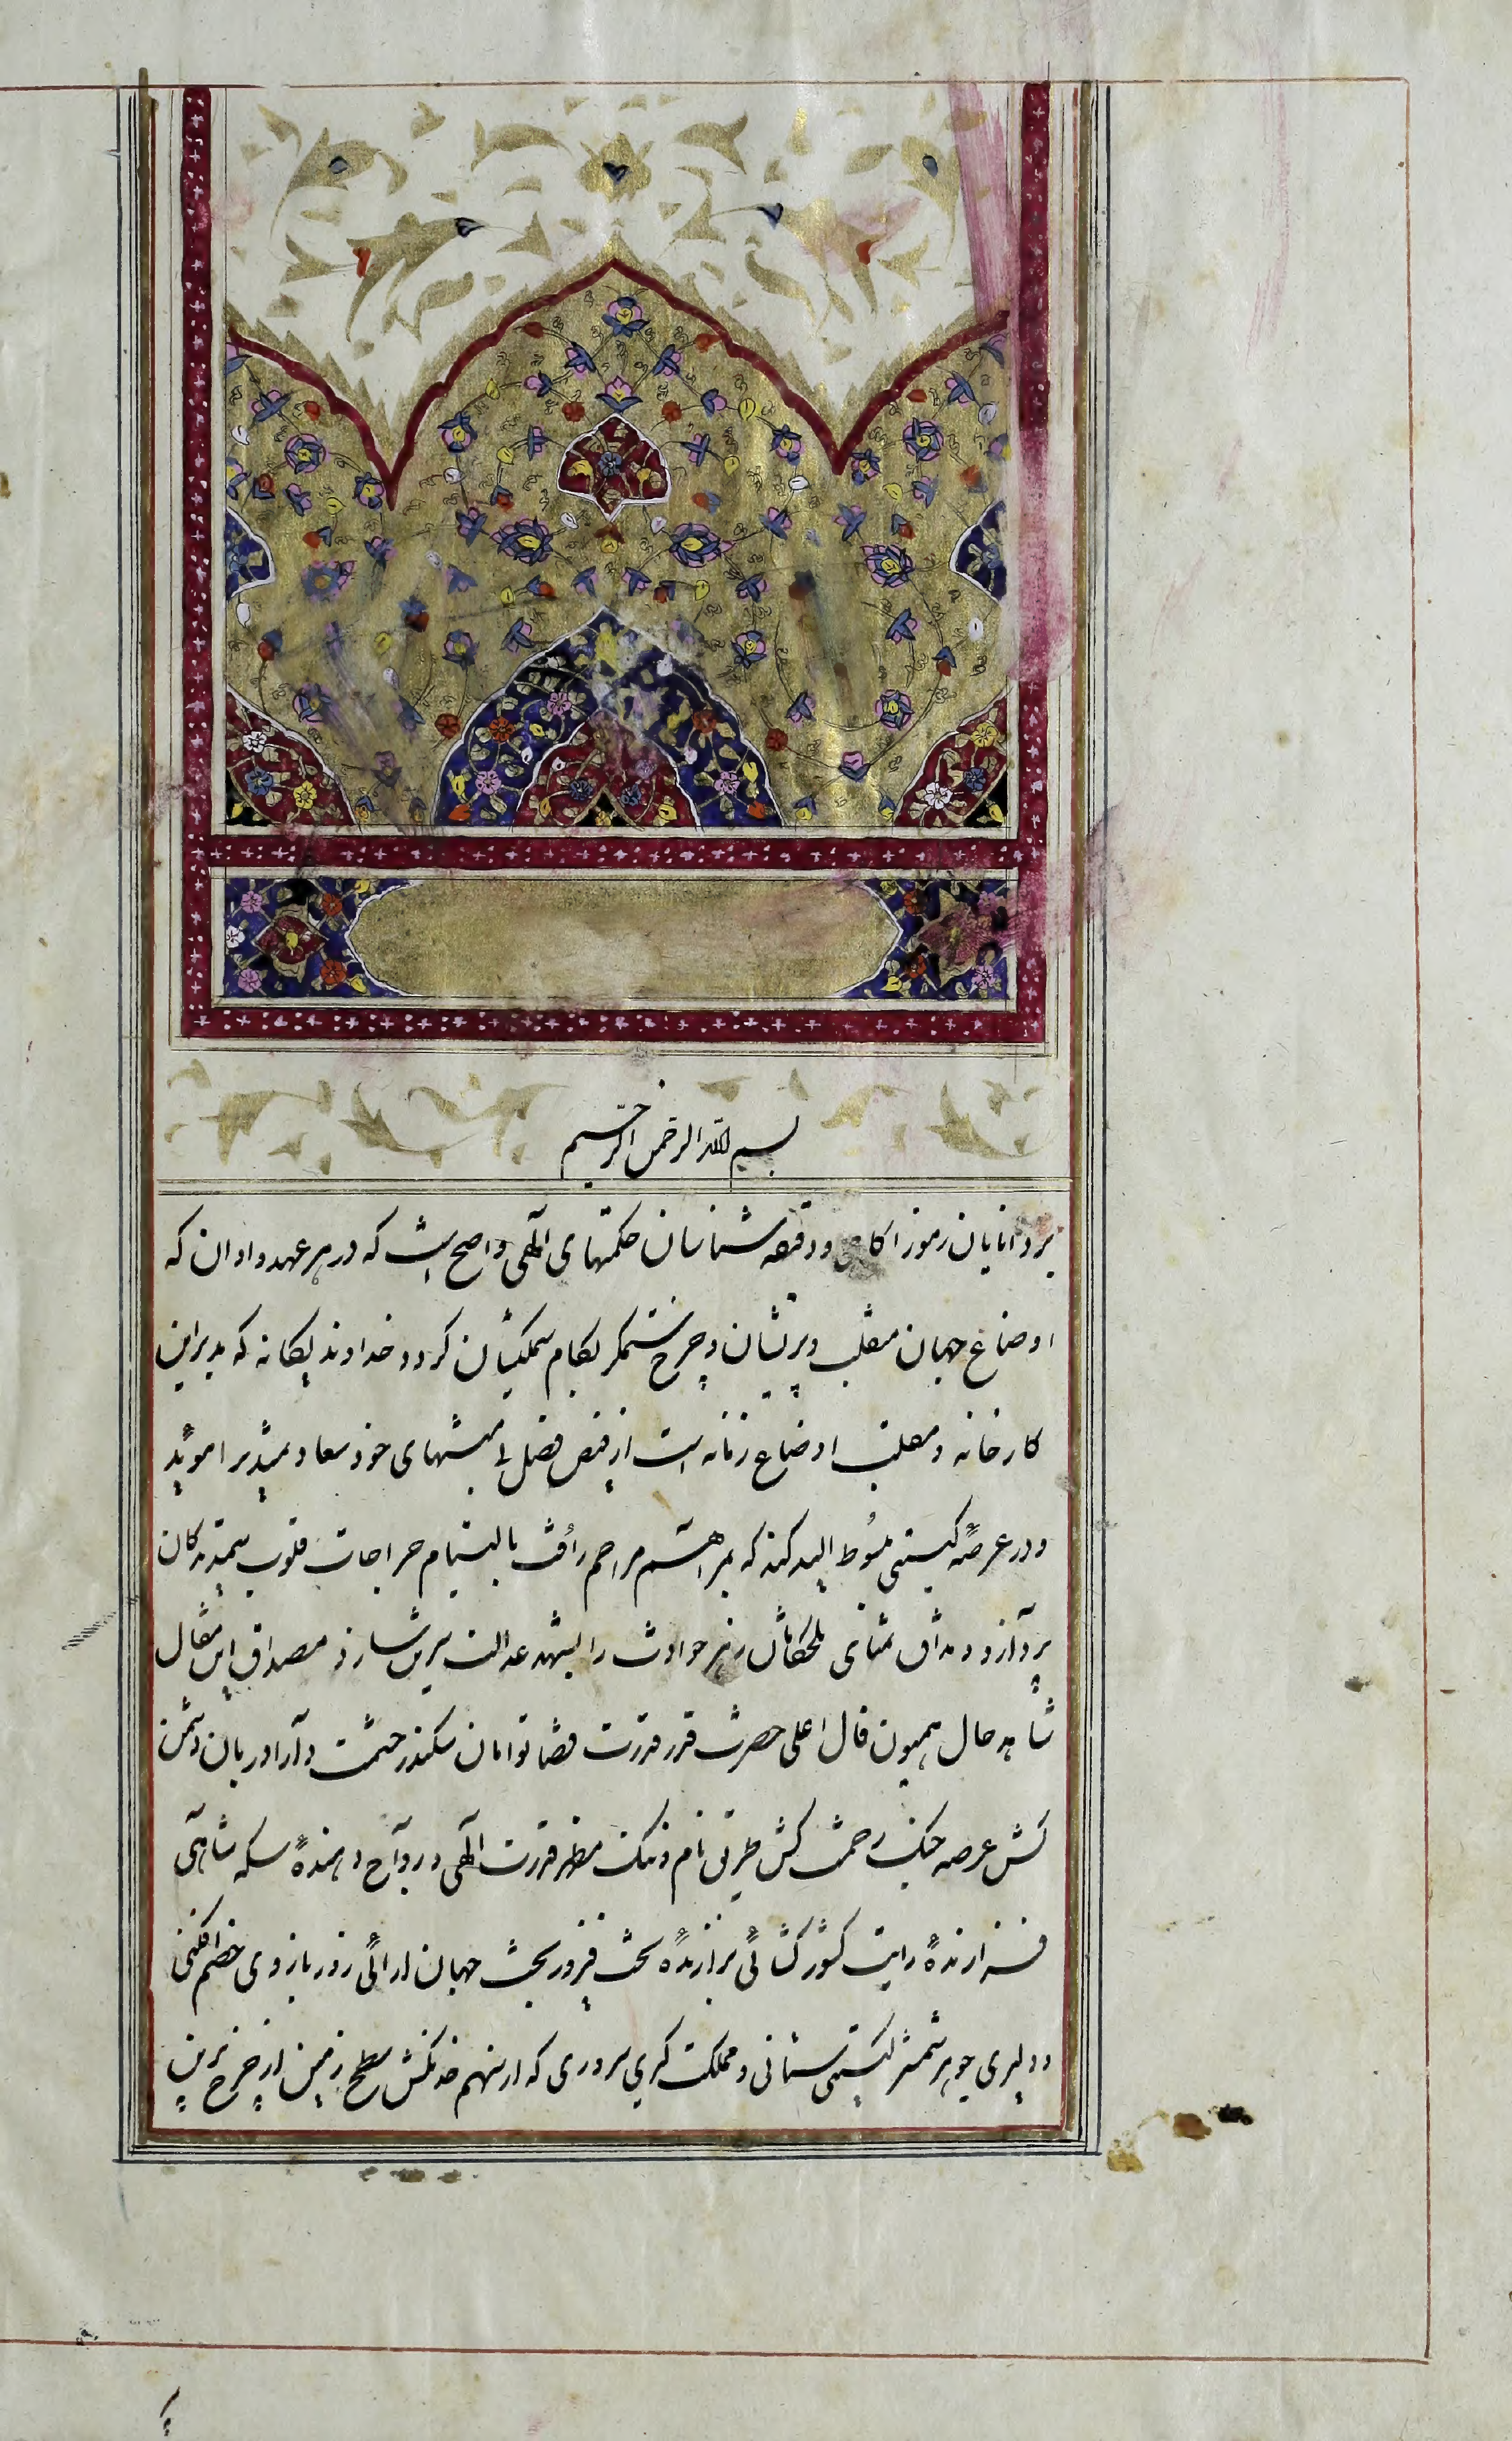 بسم الله الرحمن الرحیم
بر دانایان رموز اکاهی و دقیقه شناسان حکمتهای الهی واضح است که در هر عهد و اوان که
اوضاع جهان منقلب و پریشان و چرخ ستمکر بکام ستمکیشان کردد خداوند یکانه که مدبر این
کارخانه و مقلب اوضاع زمانه است از فیض فضل بی منتهای خود سعادتمندیرا مؤید
و در عرصهٔ کیتی مبسُوط الید کند که بمراهم مراحم و رأفت بالتیام جراحات قلوب ستمدیدکان
پردازد و مذاق تمنای تلخکامان زهر حوادث را بشهد عدالت شیرین سازد مصداق این مقال
شاهد حال همیون فال اعلی حضرت قدر قدرت قضا توامان سکندر حشمت دارا دربان دشمن
کش عرصه جنک رحمت کش طریق نام و ننک مظهر قدرت الهی و رواج دهندهٔ سکه شاهی
فرازندهٔ رایت کشور کشائی برازندهٔ تخت فیروز بخت جهان ارائی زور بازوی خصم افکنی
و دلیری جوهر شمشیر کیتی ستانی و مملکت کیری سروری که از سهم خدنکش سطح زمین از چرخ برین